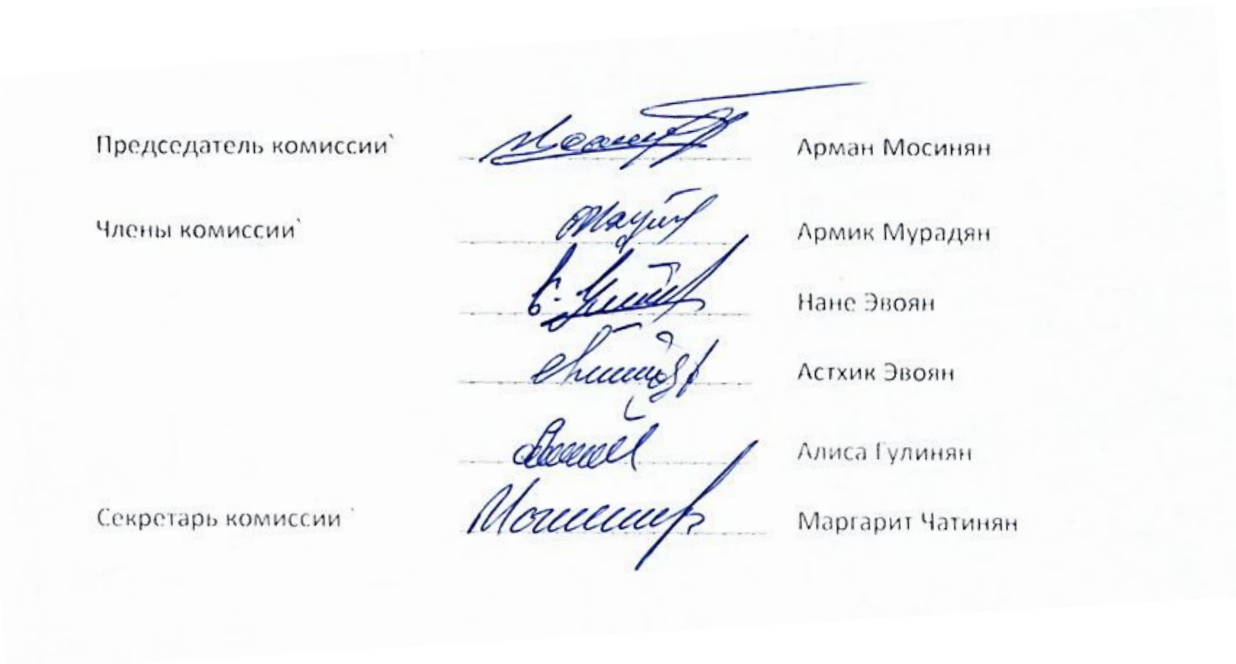 Председатель комиссии` Арман Мосинян
Члены комиссии` Армик Мурадян
Нане Эвоян
Астхик Эвоян
Алиса Гулинян
Секретарь комиссии ` Маргарит Чатинян